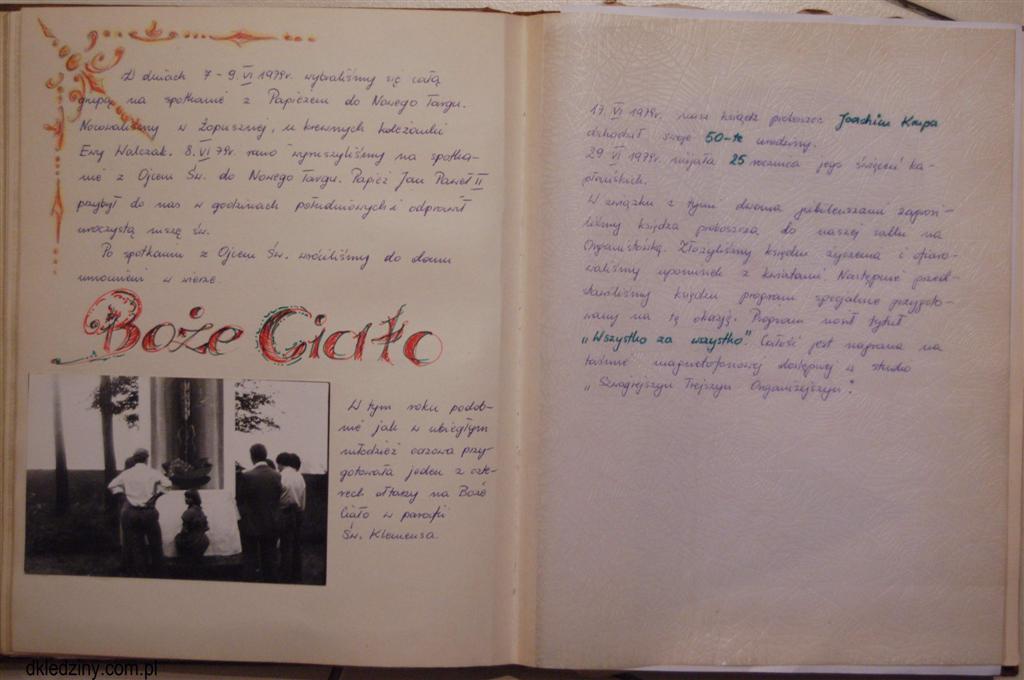 W dniach 7-9.VI 1979r. wybraliśmy się całą
grupą na spotkanie z Papieżem do Nowego Targu.
Nocowaliśmy w Łopusznej, u krewnych koleżanki
Ewy Walczak. 8.VI 79r. rano wyruszyliśmy na spotka-
nie z Ojcem Św. do Nowego Targu. Papież Jan Paweł II
przybył do nas w godzinach południowych i odprawił
uroczystą mszę św.
Po spotkaniu z Ojcem Św. wróciliśmy do domu
umocnieni w wierze.
Boże Ciało
W tym roku podob-
nie jak w ubiegłym
młodzież oazowa przy-
gotowała jeden z czte-
rech ołtarzy na Boże
Ciało w parafii
Św. Klemensa.
17.VI 1979r. nasz ksiądz proboszcz Joachim Krupa
obchodził swoje 50-te urodziny.
29.VI 1979r. mijała 25 rocznica jego święceń ka-
płańskich.
W związku z tymi dwoma jubileuszami zaprosi-
liśmy księdza proboszcza do naszej salki na
Organistówkę. Złożyliśmy księdzu życzenia i ofiaro-
waliśmy upominek z kwiatami. Następnie przed-
stawiliśmy księdzu program specjalnie przygoto-
wany na tę okazję. Program nosił tytuł
„Wszystko za wszystko". Całość jest nagrana na
taśmie magnetofonowej dostępnej w studio
dkledziny.com.pl